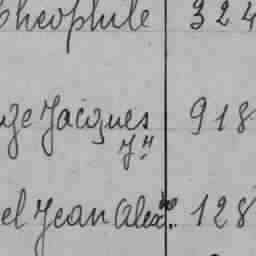 Théophile 324
Jacques 918
Jn
el Jean Alexdre. 128